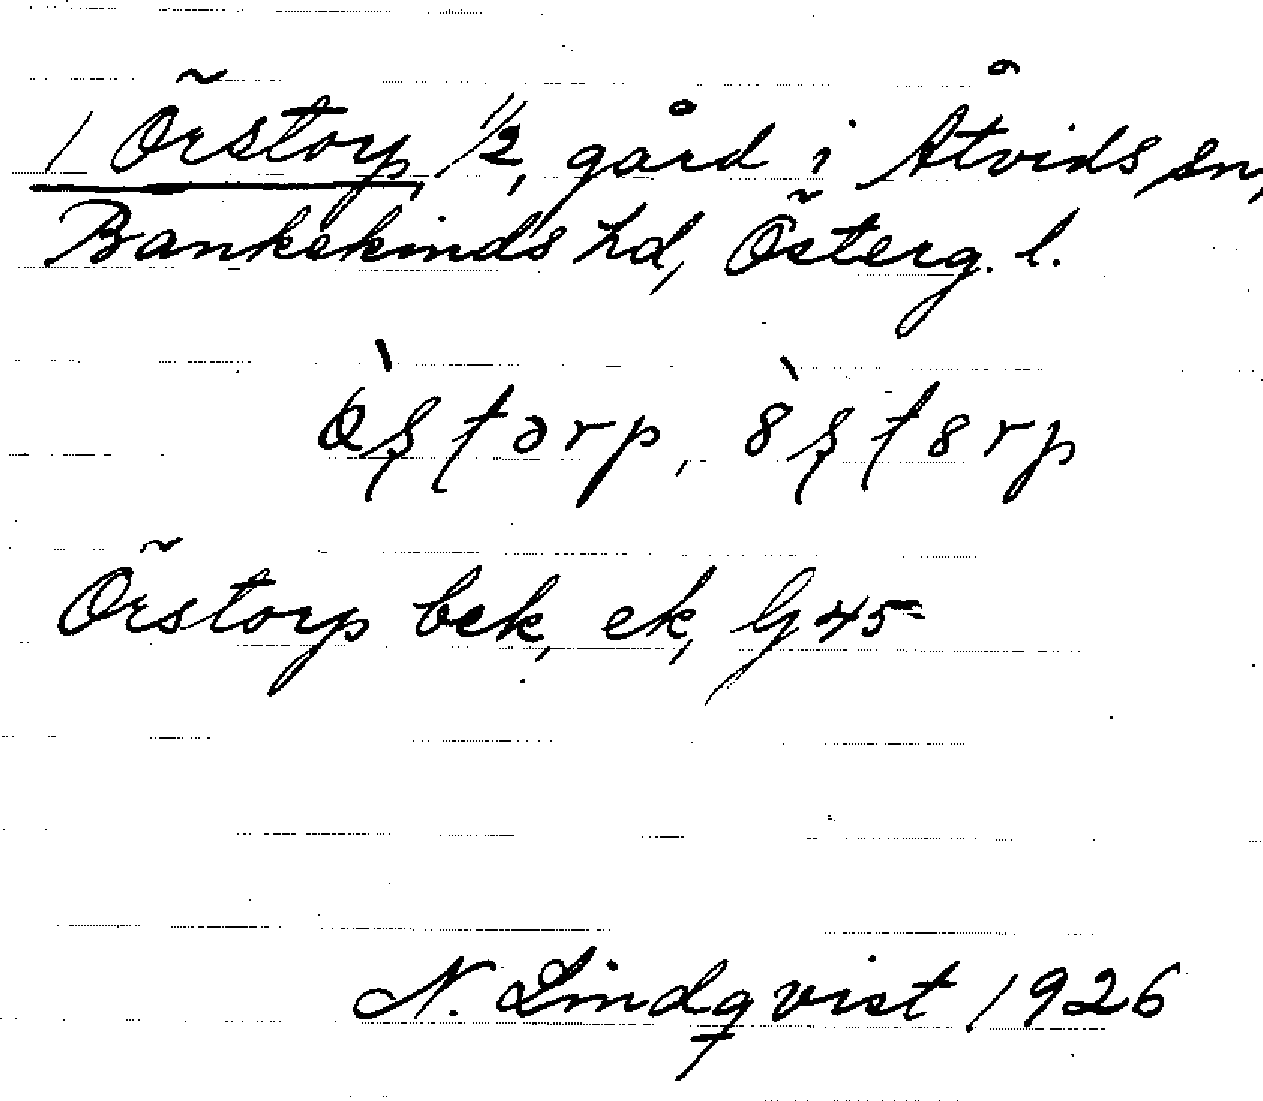 1 Örstorp 1/2, gård i Åtvids sn,
Bankekinds hd, Österg. l.
Örstorp bek, ek, G 45
N. Lindqvist 1926